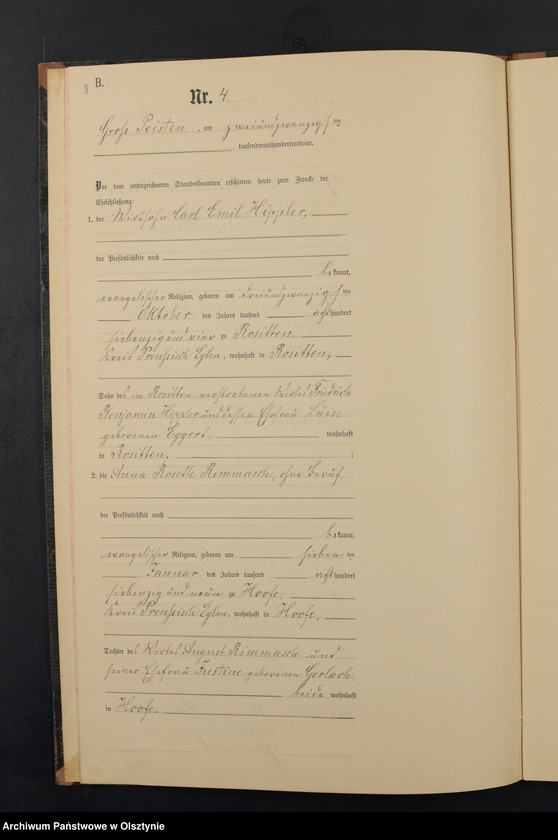 8
B.
Nr. 4.
Groß Peisten, am zweiundzwanzigsten
tausendneunhundertundvier.
Vor dem unterzeichneten Standesbeamten erschienen heute zum Zwecke der
Eheschließung:
1. der Wirtssohn Carl Emil Hippler,
der Persönlichkeit nach
bekannt,
evangelischer Religion, geboren am dreiundzwanzigsten
Oktober des Jahres tausend achthundert
siebenzig und vier zu Rositten
Kreis Preußisch Eylau, wohnhaft in Rositten,
Sohn des in Rositten verstorbenen Wirtes Friedrich
Benjamin Hippler und dessen Ehefrau Luise
geborenen Eggert, wohnhaft
in Rositten. ;
2. die Anna Rosette Rimmasch, ohne Beruf,
der Persönlichkeit nach
bekannt,
evangelischer Religion, geboren am sieben ten
Januar des Jahres tausend achthundert
siebenzig und neun zu Hoofe,
Kreis Preußisch Eylau, wohnhaft in Hoofe,
Tochter des Wirtes August Rimmasch und
seiner Ehefrau Justine geborenen Gerlach,
beide wohnhaft
in Hoofe.
Archiwum Państwowe w Olsztynie